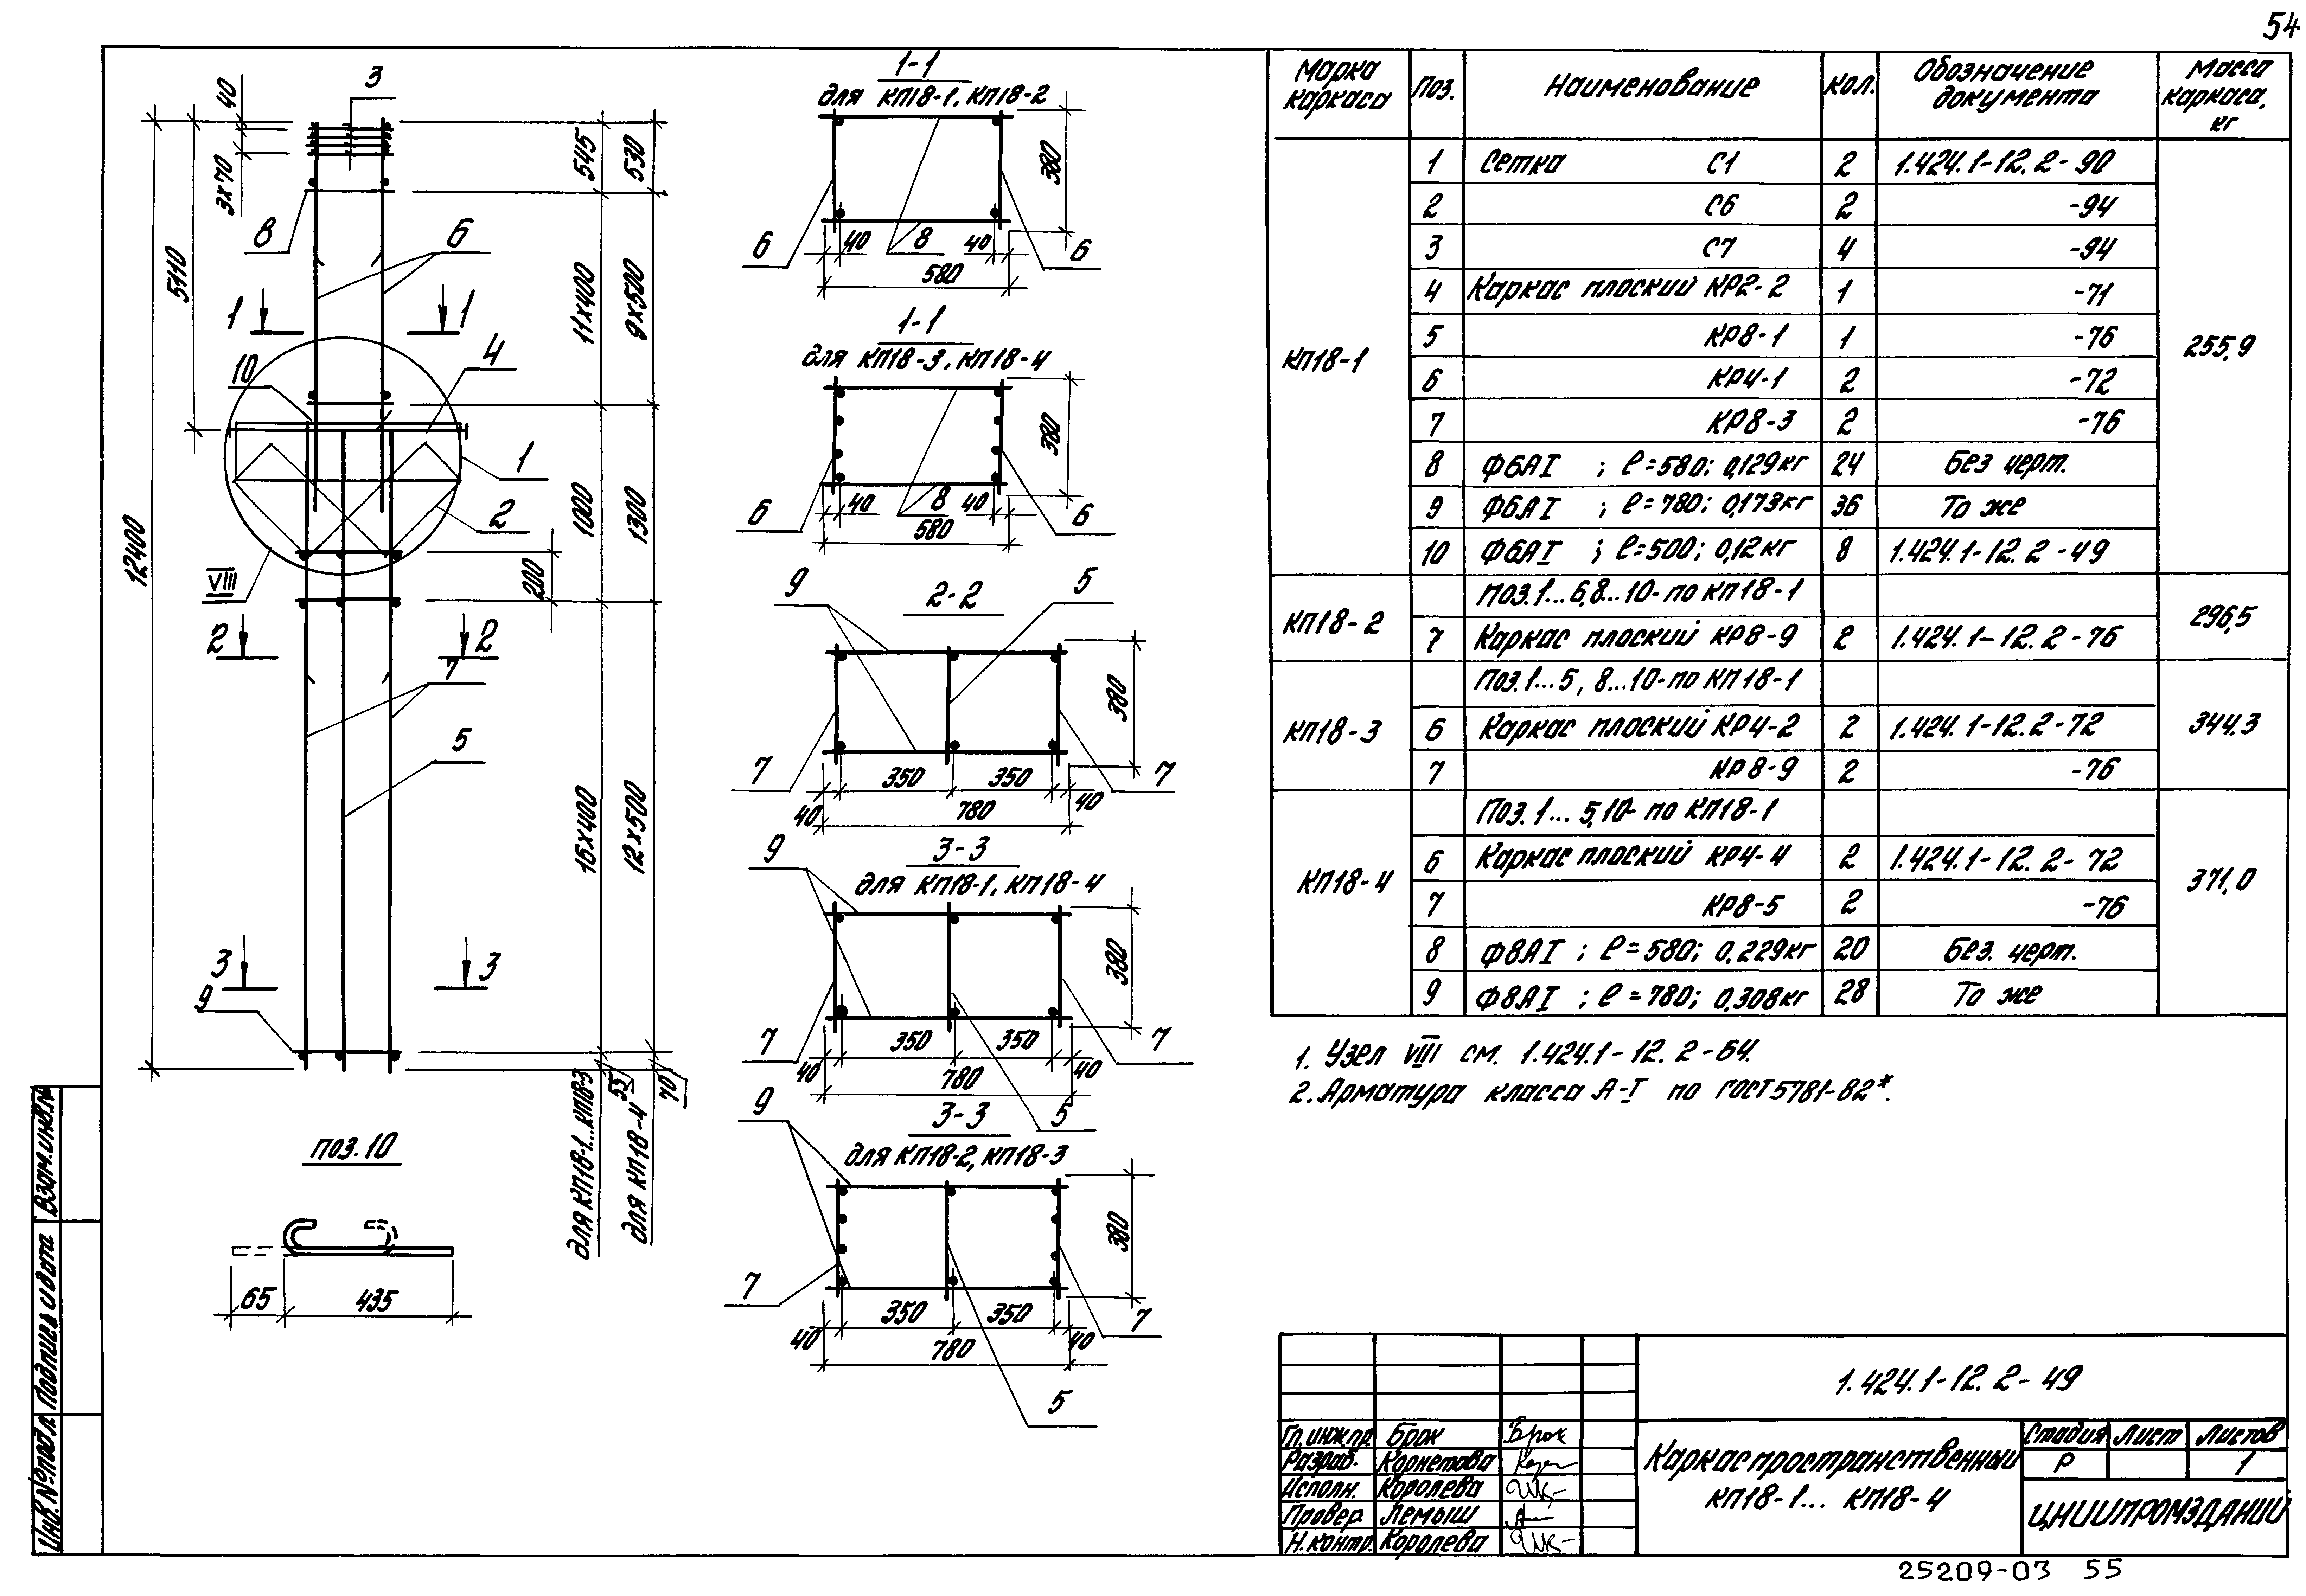 54
3
40
3х70
5110
12400
8
6
1 1
10
4
1
2
VIII
2 2
7
5
3 3
9
545
530
11х400
9х500
1000
1300
200
16х400
12х500
55
70
для КП18-1...КП18-3
для КП18-4
поз.10
65 435
1-1
для КП18-1, КП18-2
380
6 40 8 40 6
580
1-1
для КП18-3, КП18-4
380
6 40 8 40 6
580
9 2-2 5
380
7 350 350 7
40 780 40
9 3-3
для КП18-1, КП18-4
380
7 350 350 7
40 780 40
5
9 3-3
для КП18-2, КП18-3
380
7 350 350 7
40 780 40
5
Марка каркаса Поз. Наименование Кол. Обозначение документа Масса каркаса, кг
КП18-1 255,9
1 Сетка С1 2 1.424.1-12.2-90
2 С6 2 -94
3 С7 4 -94
4 Каркас плоский КР2-2 1 -71
5 КР8-1 1 -76
6 КР4-1 2 -72
7 КР8-3 2 -76
8 Ф6АI ; ℓ=580; 0,129кг 24 Без черт.
9 Ф6АI ; ℓ=780; 0,173кг 36 То же
10 Ф6АI ; ℓ=500; 0,12кг 8 1.424.1-12.2-49
КП18-2 296,5
Поз.1...6,8...10-по КП18-1
7 Каркас плоский КР8-9 2 1.424.1-12.2-76
КП18-3 344,3
Поз.1...5, 8...10-по КП18-1
6 Каркас плоский КР4-2 2 1.424.1-12.2-72
7 КР8-9 2 -76
КП18-4 371,0
Поз.1...5,10-по КП18-1
6 Каркас плоский КР4-4 2 1.424.1-12.2-72
7 КР8-5 2 -76
8 Ф8АI ; ℓ=580; 0,229кг 20 Без. черт.
9 Ф8АI ; ℓ=780; 0,308кг 28 То же
1. Узел VIII см. 1.424.1-12.2-64.
2. Арматура класса А-I по ГОСТ 5781-82*.
1.424.1-12.2-49
Гл.инж.пр. Брон
Разраб. Корнетова
Исполн. Королева
Провер. Лемыш
Н.контр. Королева
Каркас пространственный
КП18-1... КП18-4
Стадия Лист Листов
Р 1
ЦНИИПРОМЗДАНИЙ
Инв.№подл. Подпись и дата Взам.инв.№
25209-03 55